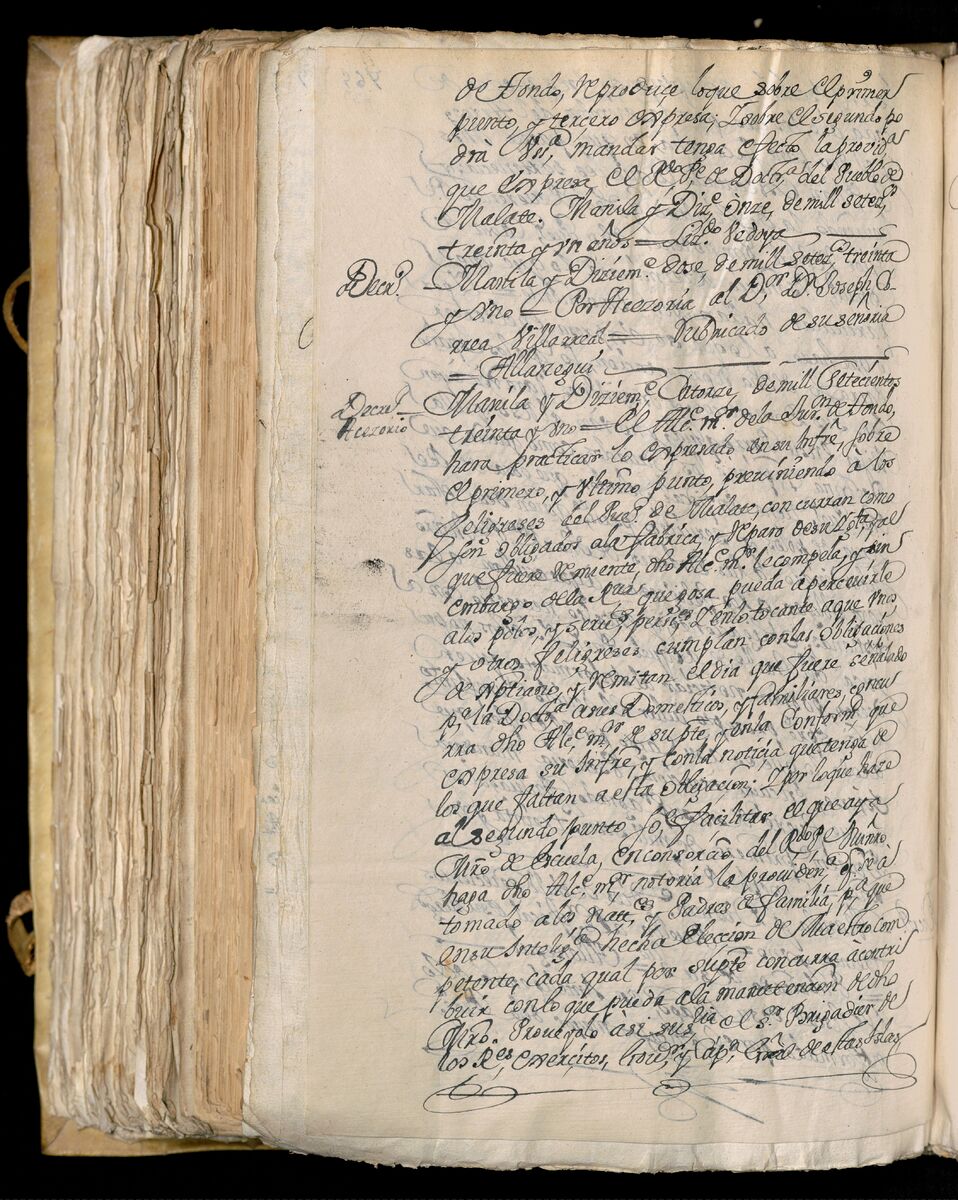 de Tondo, reproduçe loque sobre el primer
punto, y tercero expresa; Y sobre el segundo po
drà Vsª mandar tenga efecto la provida
que expresa el Rdo Pe de Doctª del Pueblo de
Malate. Manila y Dizº onze, de mill setezs
treinta y un años = Lizdo Vedoya
Decrº. Manila y Diziemº dose, de mill setezs treinta
y uno = Por Acezoria al Dor Dn Joseph Co-
rrea Villarreal = Rubricado de su señoria
= Allanegui
Decreto Acezorio Manila y Diziemº Catorze, de mill Setecientos
treinta y uno = El Alce mor dela Jurn de Tondo,
hara practicar lo expresado en su Infre, sobre
el primero, y ultimo punto, previniendo à los
feligreses del Pueo de Malate, concurran como
son obligados ala fabrica, y reparo de su Iglª, y al
que fuere remiente dho Alce mor le compela, y sin
embargo dela que gosa pueda apercevirle
alos polos, y servs persos Y en lo tocante aque unos,
y otros feligreses cumplan con las obligaciones
de xptiano, y remitan el dia que fuere señalado
pª la Doctª asus Domesticos, y familiares, concu
rra dho Alce mor de su pte, y en la Conformd que
expresa su Infre, y con la noticia que tenga de
los que faltan a esta obligacion; Y por loque haze
al segundo punto so, facilitar el que aya
Mro de Escuela, en consorcio del Rdo Pe Minro
haga dho Alce mor notoria la providenª q se a
tomado alos natts y Padres de familia, pª que
en su Inteligª hecha eleccion de Maestro com
petente, cada qual por su pte concurra à contri
buir con lo que pueda ala manutencion de dho
Mro. Proveyolo asi su sria el sr Brigadier de
los Rs exercitos, Govor y Capn Genl de estas Islas